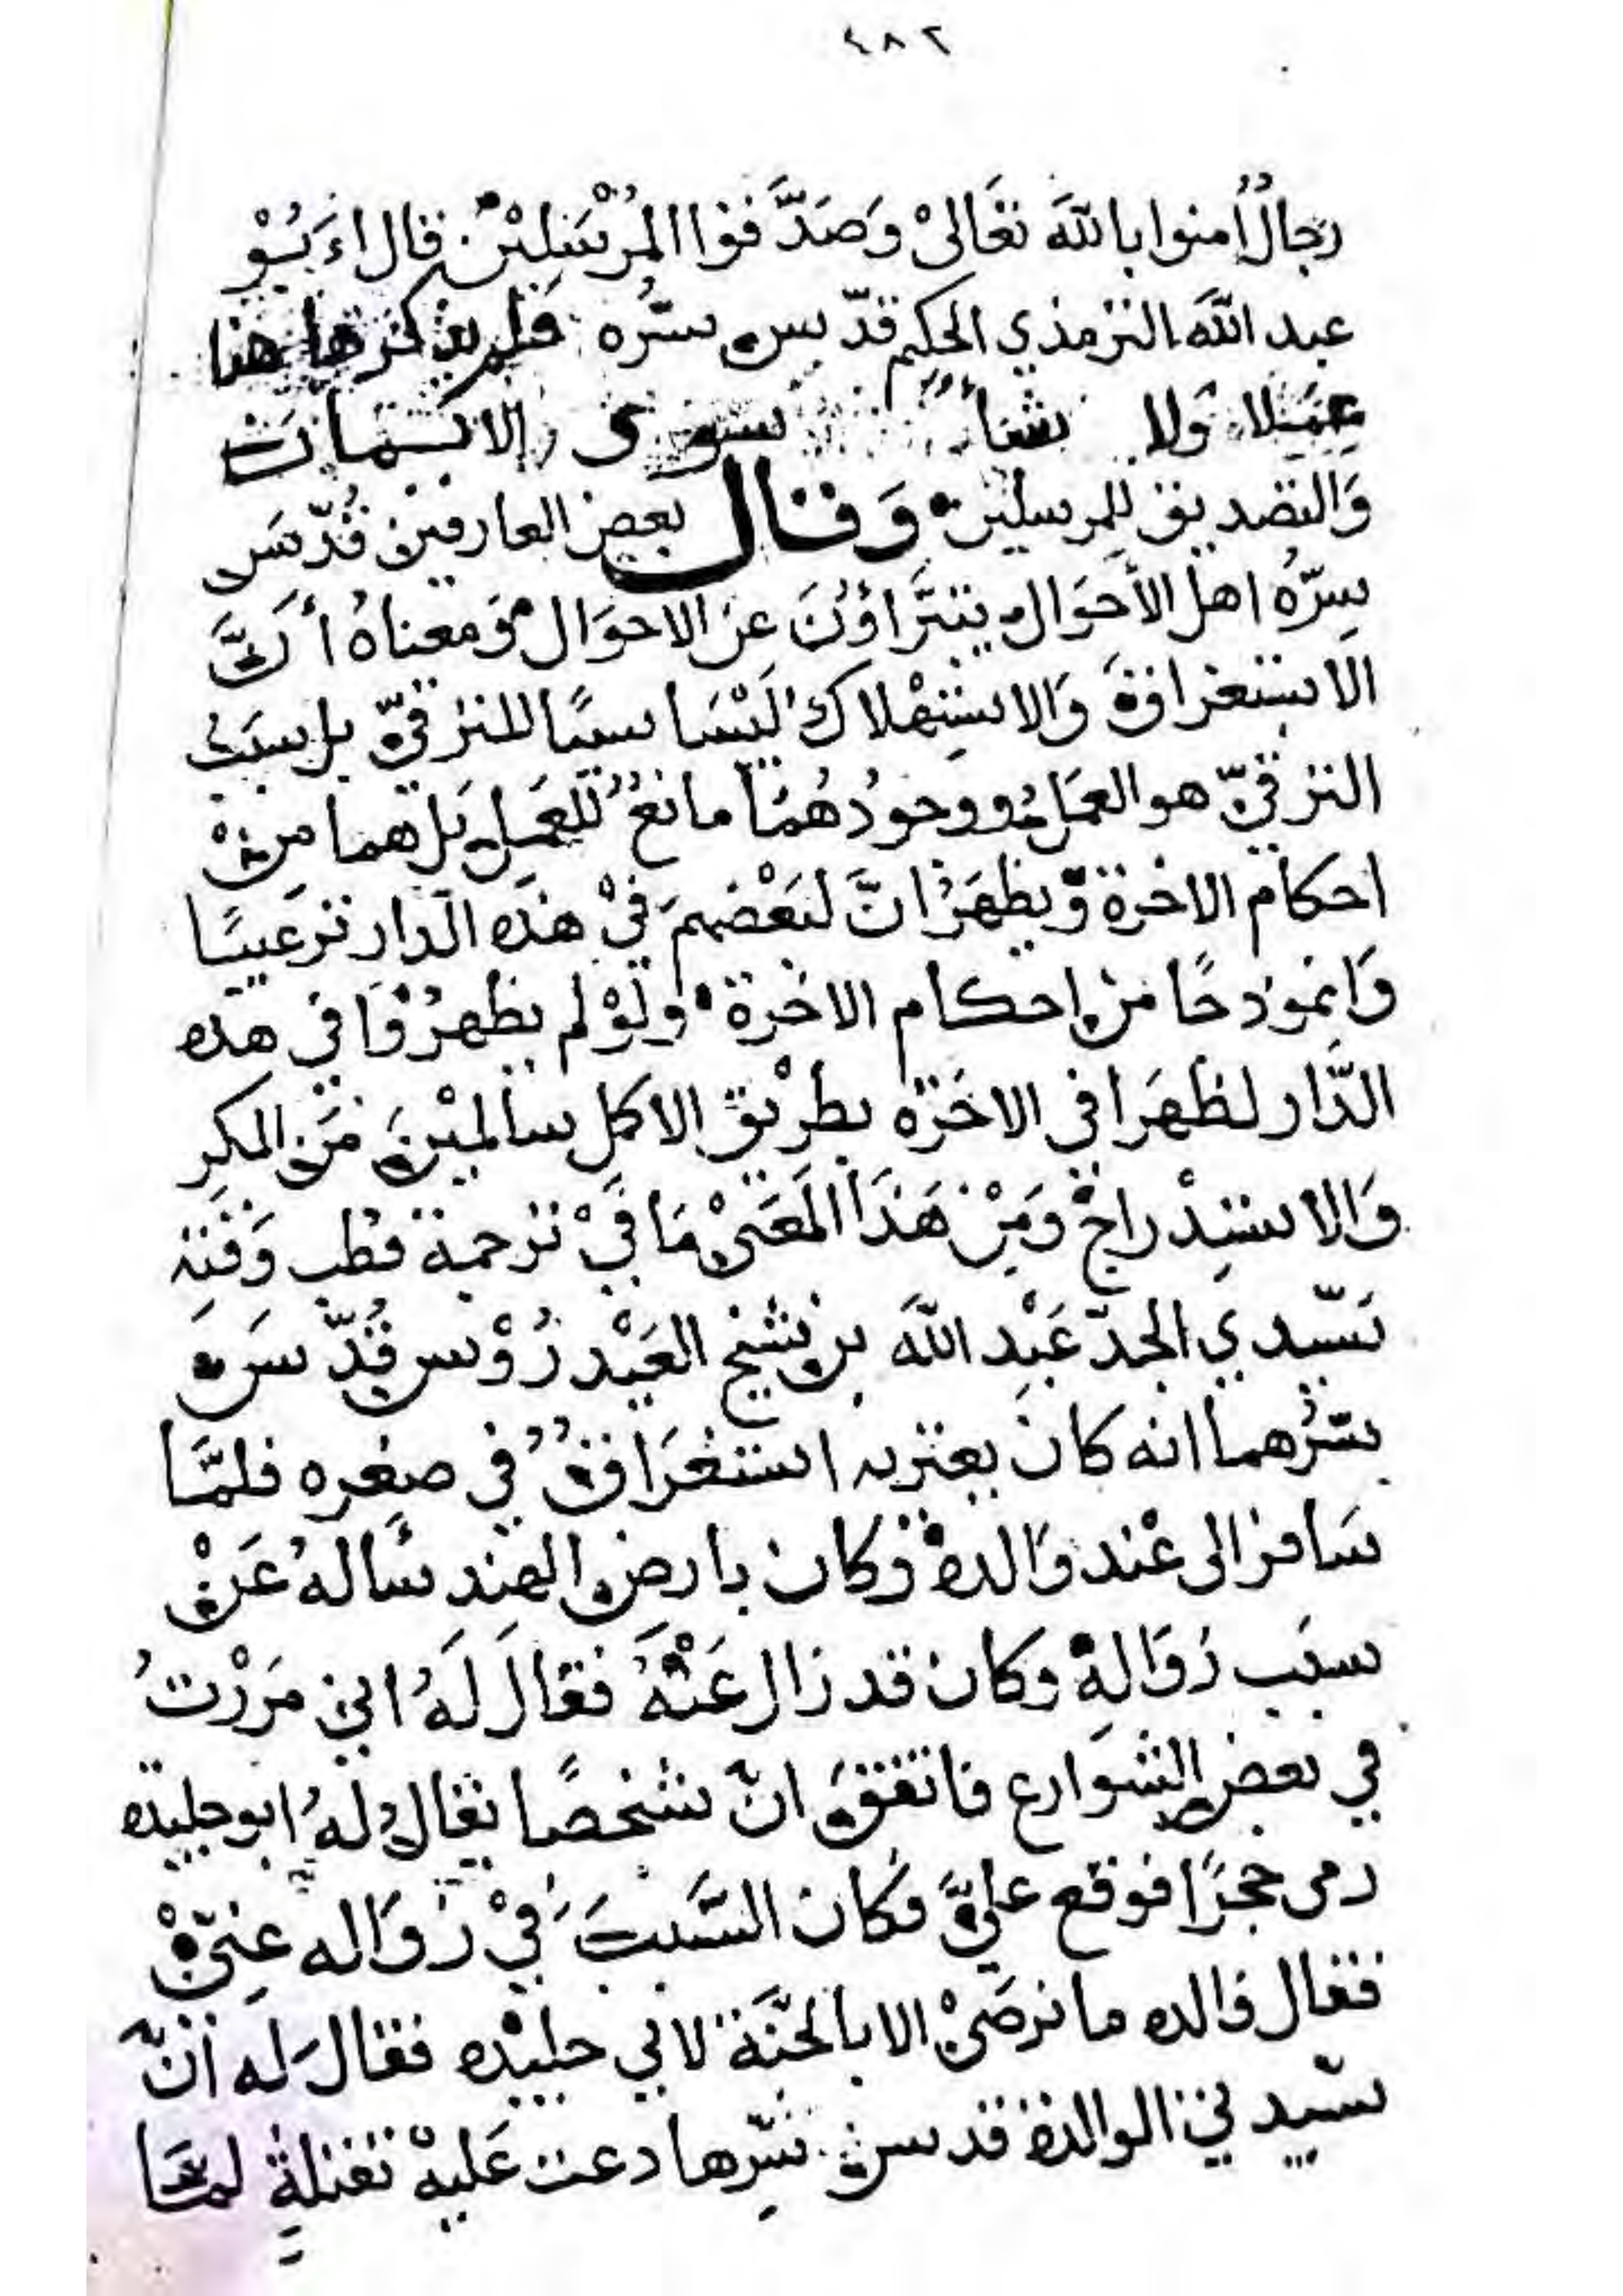 ٤٨٢
رجالٌ امنوا بالله تعالى وَصَدَّقوا المُرْسَلِيْن. قال اَبُوْ
عبد الله الترمذي الحكيم قدّس سّره فلم يذكر ها هنا
عمَلا وَلا شيأً سوى الايمان
وَالتصديق للمرسلين وَقال بعض العارفين قُدّسَ
سِرّهُ اهل الأحوَال يتبَرَّاؤُنَ عن الاحوَال وَمعناهُ أنَّ
الاستغراق وَالاستِهْلاك لَيْسَا سببًا للترقيّ بل سببُ
الترقيّ هو العمَلُ ووجودُهُمَا مانعٌ للعَمل بَل هما منْ
احكام الاخرة وَيظهرُ انَّ لبَعْضهم فيْ هذه الدار ترغيبًا
وَانموذجًا من احكام الاخرة ولَوْ لم يظهرُوَا في هذه
الدَّار لظهَرَا في الاخَرَة بطرْيق الاكمل سالمِيْنَ مَن المكرِ
وَالاستِدْراج وَمِنْ هَذَا المَعَنىْ مَا فيْ ترجمة قطب وَقتِه
سَيّدي الجدّ عَبْدِ اللهَ بن شيخ العَيْدرُوْس قُدّسَ
سّرُهما انه كان يعتريه استغرَاقٌ في صغره فلمَّا
سَافر الى عْند وَالده وَكان بارض الهندِ سَألهُ عَنْ
سبَب زوَالهِ وَكان قد زال عَنْهُ فقال لَهُ اني مَرَرْتُ
في بعض الشوَارع فاتفقَ انّ شخصًا يقال لهُ ابو جليده
رمى حجرًا فوقع عليَّ فكان السَّببَ فيْ زوَاله عنِّيْ
فقال وَالده ما نرضَىْ الا بالجنَّة لابي جليْده فقالَ له انّ
سّيدتي الوالدة قدس سّرها دعت عَليهْ بقتلةٍ لمَّا